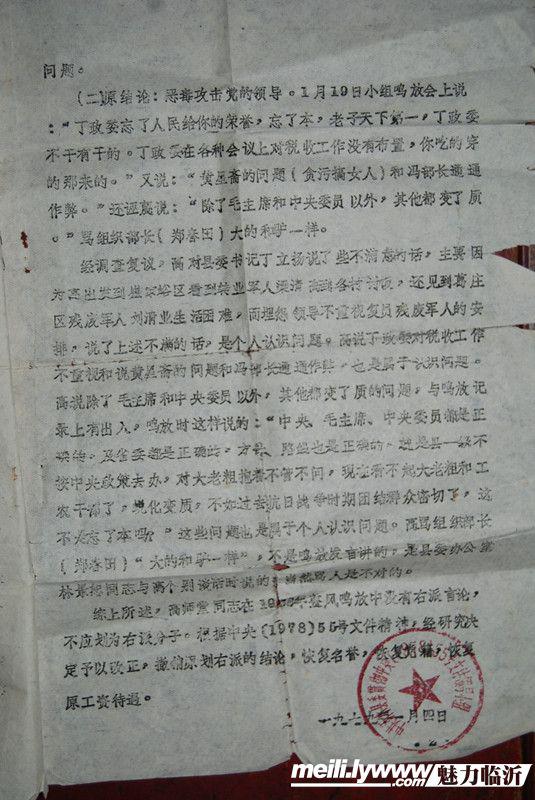 问题。
(二)原结论：恶毒攻击党的领导。1月19日小组鸣放会上说
："丁政委忘了人民给你的荣誉，忘了本，老子天下第一，丁政委
不干有干的。丁政委在各种会议上对税收工作没有布置，你吃的穿
的那来的。"又说："黄星斋的问题(贪污搞女人)和冯部长通通
作弊。"还诬蔑说："除了毛主席和中央委员以外，其他都变了质
。"骂组织部长(郑春田)大的和驴一样。
经调查复议，高对县委书记丁立扬说了些不满意的话，主要因
为高出发到 区看到转业军人梁清 到各村讨饭，还见到葛庄
区残废军人刘清业生活困难，而埋怨领导不重视复员残废军人的安
排，说了上述不满的话，是个人认识问题。高说丁政委对税收工作
不重视和说黄星斋的问题和冯部长通通作弊，也是属于认识问题。
高说除了毛主席和中央委员以外，其他都变了质的问题，与鸣放记
录上有出入，鸣放时这样说的："中央、毛主席、中央委员都是正
确的。至省委都是正确的，方针、路线也是正确的。就是县一级不
按中央政策去办，对大老粗抱着不管不问，现在看不起大老粗和工
农干部了，蜕化变质，不如过去抗日战争时期团结群众密切了，这
不是忘了本吗？"这些问题也是属于个人认识问题。高骂组织部长
(郑春田)"大的和驴一样"，不是鸣放发言讲的，是县委办公室
林 同志与高个别谈话时说的，当然骂人是不对的。
综上所述，高师堂同志在19 年整风鸣放中没有右派言论，
不应划为右派分子。根据中央(1978)55号文件精神，经研究决
定予以改正，撤销原划右派的结论，恢复名誉，恢复党籍，恢复
原工资待遇。
一九七九年一月四日
meili.lywww.com 魅力临沂